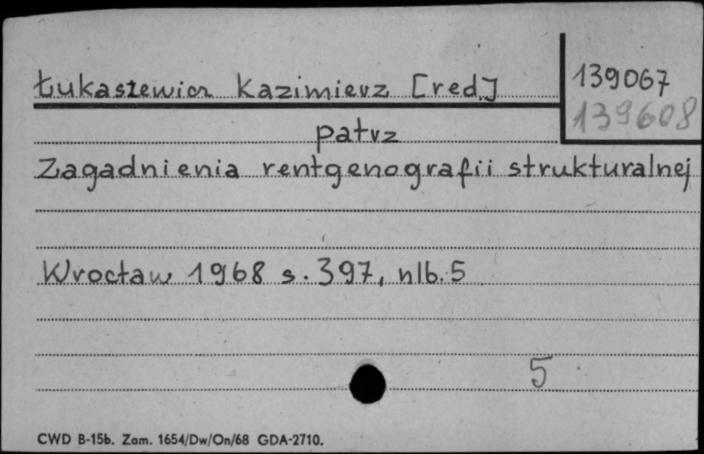 Łukaszewicz Kazimierz [red.]
139067
139608
patrz
Zagadnienia rentgenografii strukturalnej
Wrocław 1968 s. 397, nlb. 5
5
CWD B-15b. Zam. 1654/Dw/On/68 GDA-2710.